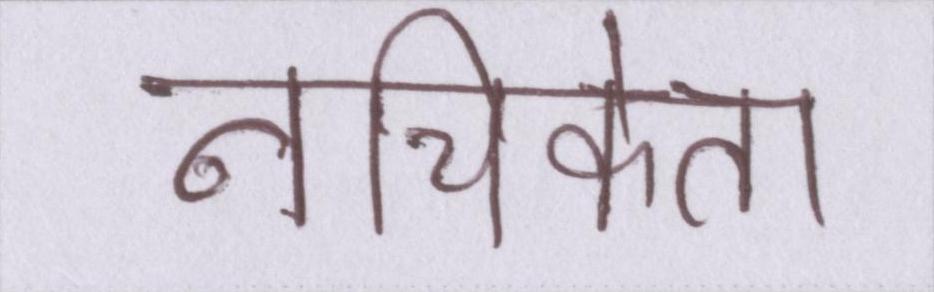 नचिकेता